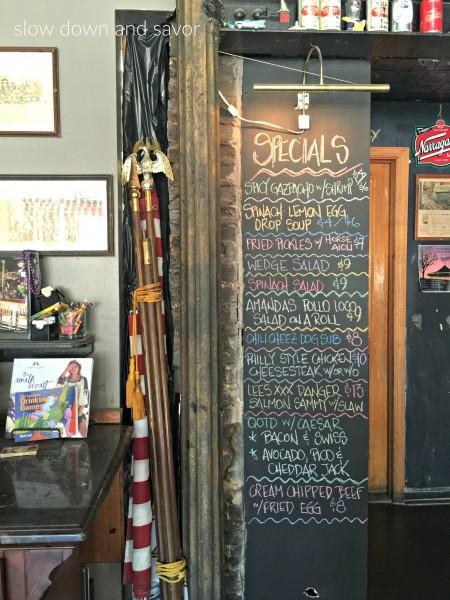 slow down and savor
SPECIALS
SPICY GAZPACHO w/SHRIMP $4/$6
SPINACH LEMON EGG
DROP SOUP $4/$6
FRIED PICKLES w/ HORSE AIOLI $7
WEDGE SALAD $9
SPINACH SALAD $9
AMANDAS POLLO LOCO
SALAD ON A ROLL $9
CHILI CHEEZ DOG SUB $8
PHILLY STYLE CHICKEN $10
CHEESESTEAK W/ OR W/O
LEES XXX DANGER $13
SALMON SAMMY W/SLAW
QOTD W/ CAESAR
* BACON & SWISS
* AVOCADO, PICO &
CHEDDAR JACK
CREAM CHIPPED BEEF
w/FRIED EGG $8
Narragansett
Drinking
Games